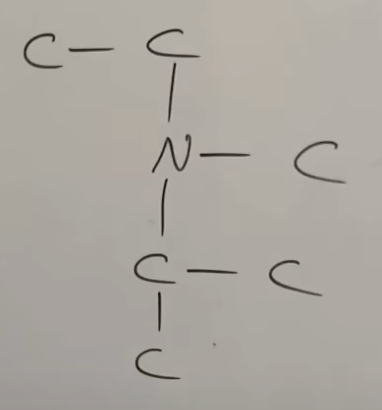 C — C
|
N — C
|
C — C
|
C